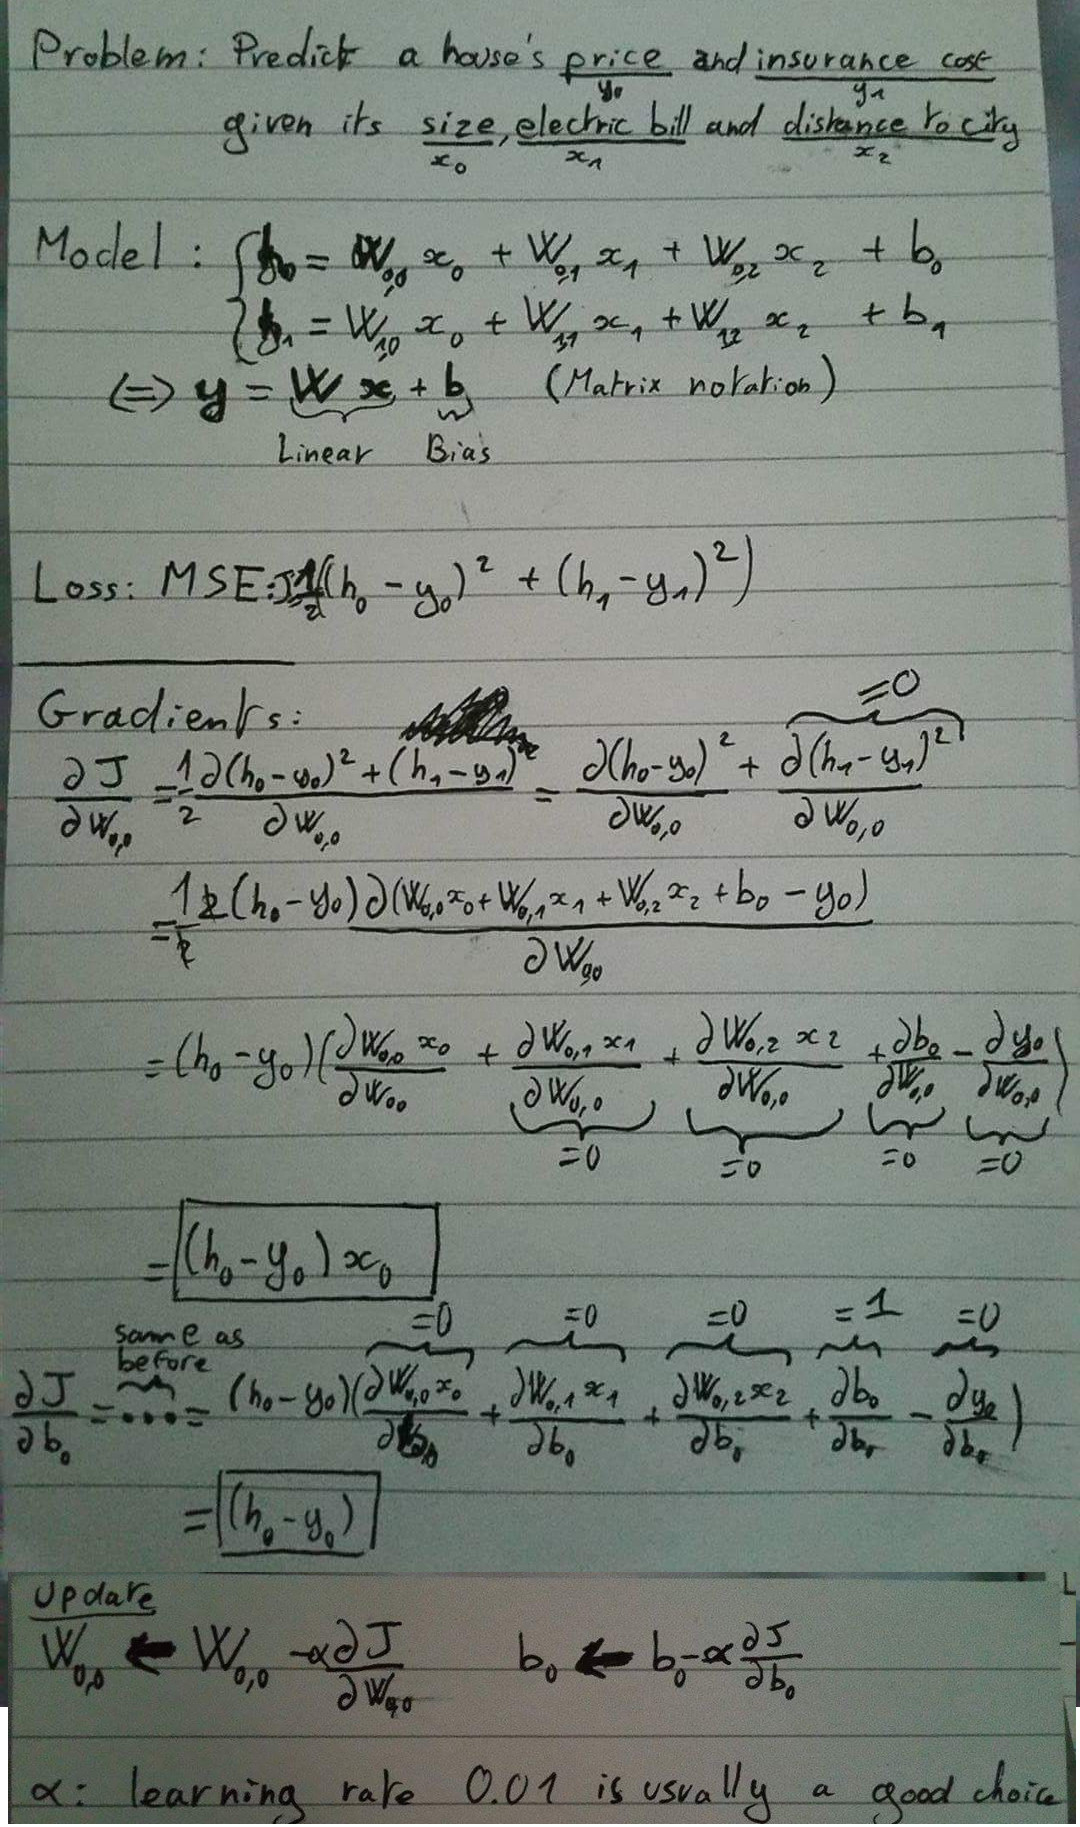 Problem: Predict a house's price and insurance cost
y₀ y₁
given its size, electric bill and distance to city
x₀ x₁ x₂
Model: { h₀ = W₀,₀ x₀ + W₀,₁ x₁ + W₀,₂ x₂ + b₀
{ h₁ = W₁,₀ x₀ + W₁,₁ x₁ + W₁,₂ x₂ + b₁
⟺ y = W x + b (Matrix notation)
Linear Bias
Loss: MSE: J=1/2((h₀ - y₀)² + (h₁ - y₁)²)
Gradients:
=0
∂J/∂W₀,₀ = 1/2 ∂(h₀-y₀)² + (h₁-y₁)²/∂W₀,₀ = ∂(h₀-y₀)²/∂W₀,₀ + ∂(h₁-y₁)²/∂W₀,₀
= 1/2 2(h₀-y₀) ∂(W₀,₀x₀ + W₀,₁x₁ + W₀,₂x₂ + b₀ - y₀)/∂W₀,₀
= (h₀-y₀)(∂W₀,₀x₀/∂W₀,₀ + ∂W₀,₁x₁/∂W₀,₀ + ∂W₀,₂x₂/∂W₀,₀ + ∂b₀/∂W₀,₀ - ∂y₀/∂W₀,₀)
=0 =0 =0 =0
= (h₀-y₀)x₀
same as before =0 =0 =0 =1 =0
∂J/∂b₀ = ... = (h₀-y₀)(∂W₀,₀x₀/∂b₀ + ∂W₀,₁x₁/∂b₀ + ∂W₀,₂x₂/∂b₀ + ∂b₀/∂b₀ - ∂y₀/∂b₀)
= (h₀-y₀)
Update
W₀,₀ ← W₀,₀ -α∂J/∂W₀,₀ b₀ ← b₀-α∂J/∂b₀
α: learning rate 0.01 is usually a good choice